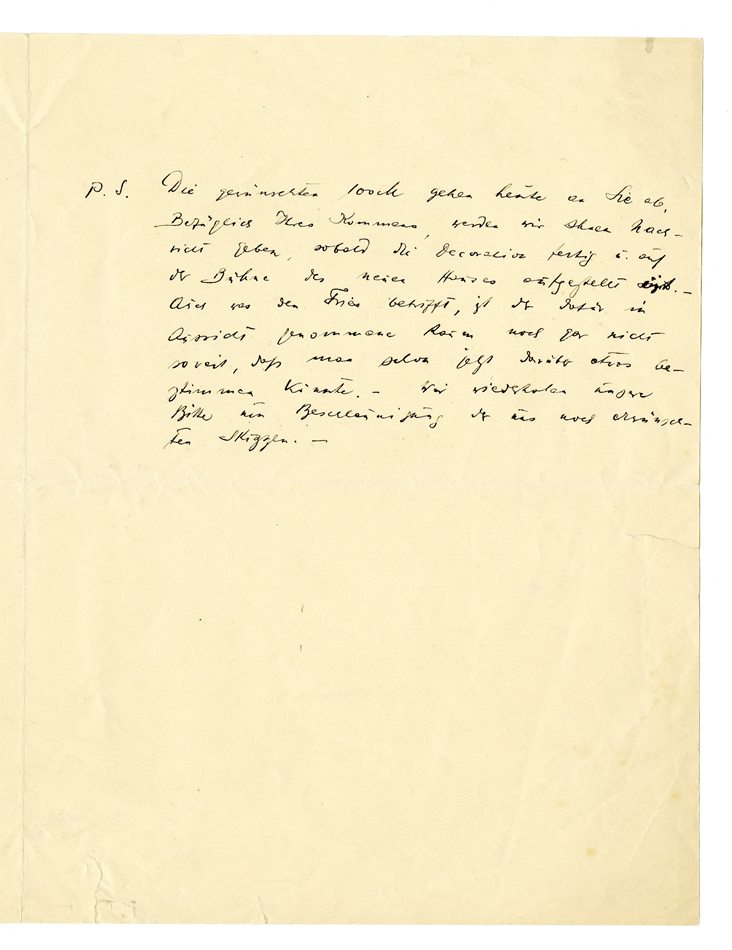 P. S. Die gewünschten 100 M gehen heute an Sie ab.
Bezüglich Ihres Kommens, werden wir Ihnen Nach-
richt geben, sobald die Decoration fertig u. auf
der Bühne des neuen Hauses aufgestellt ist. –
Auch was den Fries betrifft, ist der dafür in
Aussicht genommene Raum noch gar nicht
soweit, daß man schon jetzt darüber etwas be-
stimmen könnte. – Wir wiederholen unsere
Bitte um Beschleunigung der uns noch erwünsch-
ten Skizzen. –